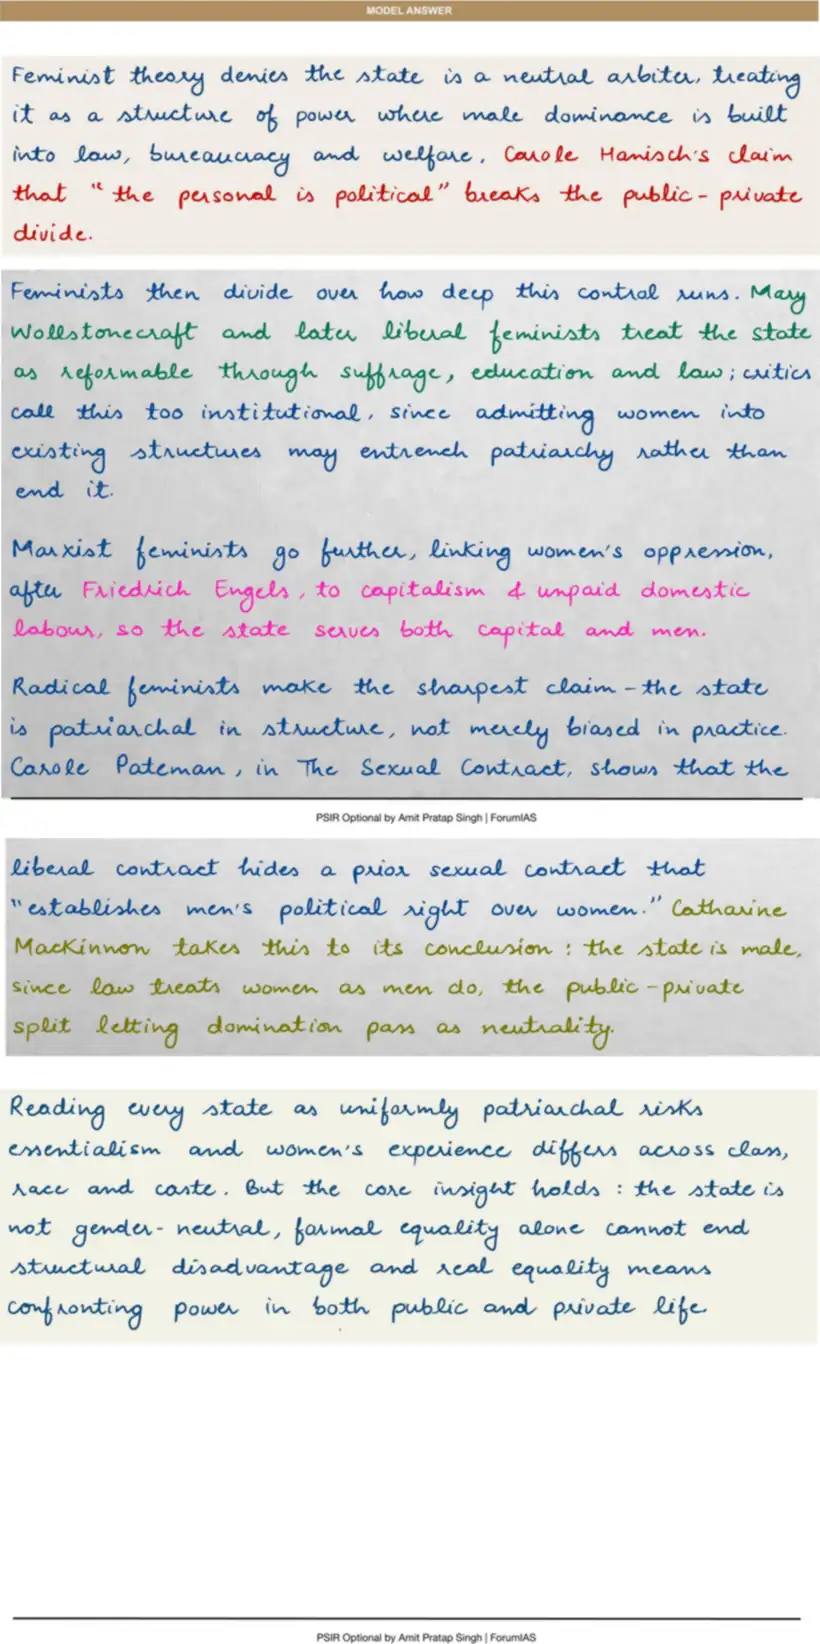 MODEL ANSWER
Feminist theory denies the state is a neutral arbiter, treating
it as a structure of power where male dominance is built
into law, bureaucracy and welfare. Carole Hanisch's claim
that "the personal is political" breaks the public-private
divide.
Feminists then divide over how deep this control runs. Mary
Wollstonecraft and later liberal feminists treat the state
as reformable through suffrage, education and law; critics
call this too institutional, since admitting women into
existing structures may entrench patriarchy rather than
end it.
Marxist feminists go further, linking women's oppression,
after Friedrich Engels, to capitalism & unpaid domestic
labour, so the state serves both capital and men.
Radical feminists make the sharpest claim - the state
is patriarchal in structure, not merely biased in practice.
Carole Pateman, in The Sexual Contract, shows that the
PSIR Optional by Amit Pratap Singh | ForumIAS
liberal contract hides a prior sexual contract that
"establishes men's political right over women." Catharine
MacKinnon takes this to its conclusion: the state is male,
since law treats women as men do, the public-private
split letting domination pass as neutrality.
Reading every state as uniformly patriarchal risks
essentialism and women's experience differs across class,
race and caste. But the core insight holds: the state is
not gender-neutral, formal equality alone cannot end
structural disadvantage and real equality means
confronting power in both public and private life
PSIR Optional by Amit Pratap Singh | ForumIAS